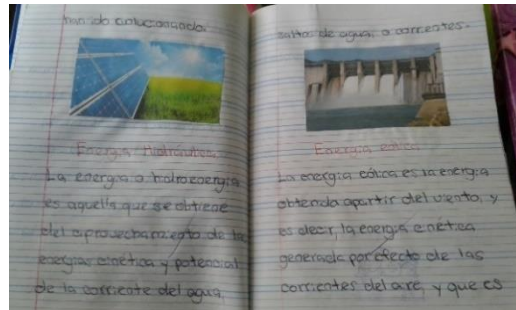 han ido evolucionado.
Energía Hidráulica
La energía o hidroenergía
es aquella que se obtiene
del aprovechamiento de la
energías cinética y potencial
de la corriente del agua,
saltos de agua, o corrientes.
Energía eólica
La energía eólica es la energía
obtenida apartir del viento, y
es decir, la energía cinética
generada por efecto de las
corrientes del aire, y que es